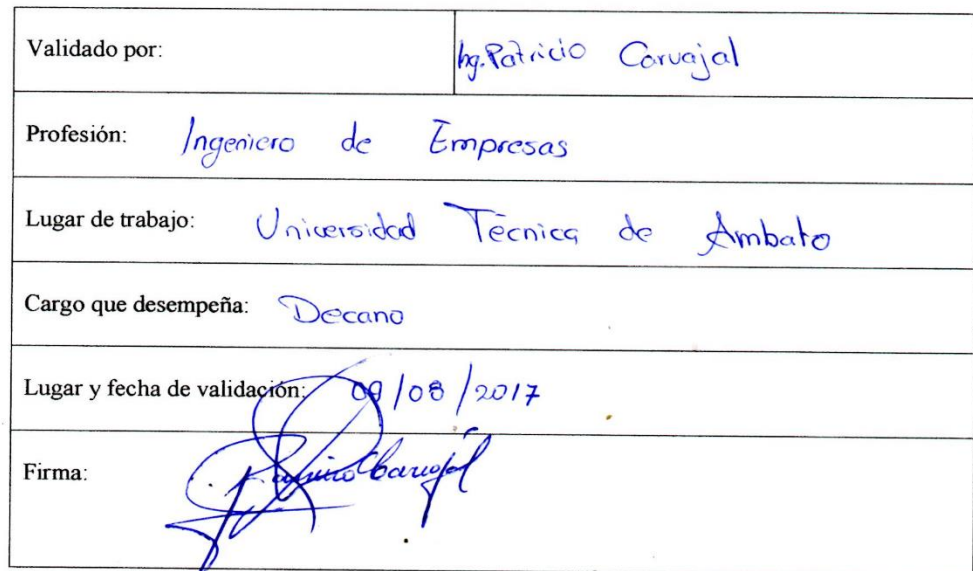 Validado por: Ing. Patricio Carvajal
Profesión: Ingeniero de Empresas
Lugar de trabajo: Universidad Técnica de Ambato
Cargo que desempeña: Decano
Lugar y fecha de validación: 09/08/2017
Firma: Carvajal